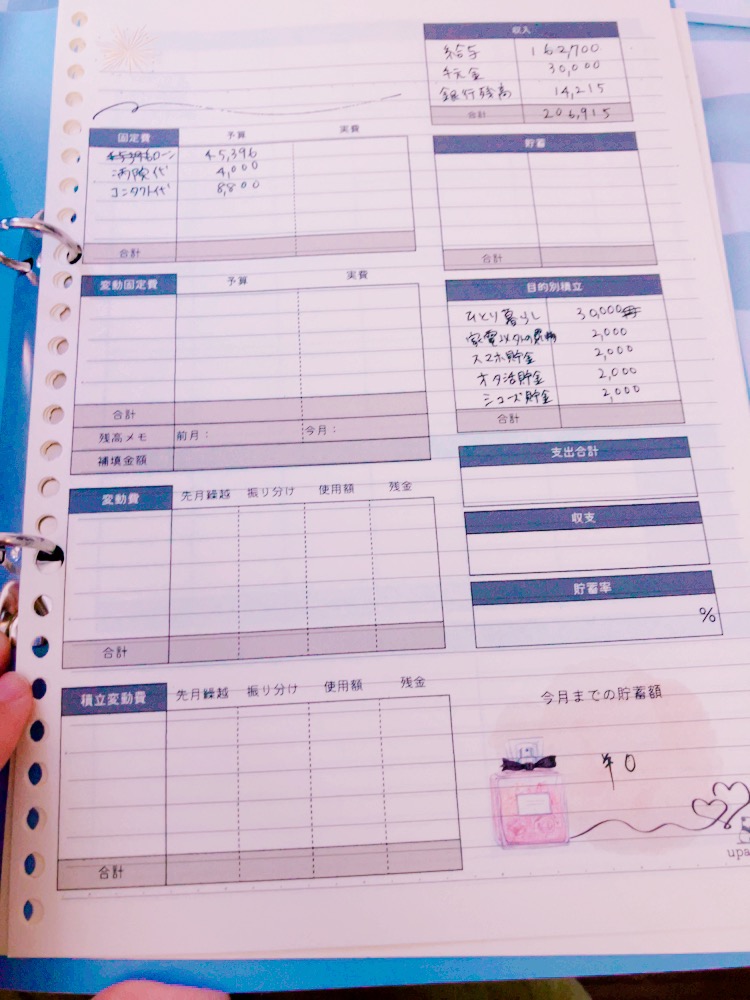 収入
給与 162,700
30,000
銀行残高 14,215
合計 206,915
固定費 予算 実費
ローン 45,396
4,000
コンタクト代 8,800
合計
貯蓄
合計
変動固定費 予算 実費
合計
残高メモ 前月： 今月：
補填金額
目的別積立
ひとり暮らし 30,000
2,000
スマホ貯金 2,000
オタ活貯金 2,000
シューズ貯金 2,000
合計
支出合計
収支
貯蓄率
%
変動費 先月繰越 振り分け 使用額 残金
合計
積立変動費 先月繰越 振り分け 使用額 残金
合計
今月までの貯蓄額
¥0
upa